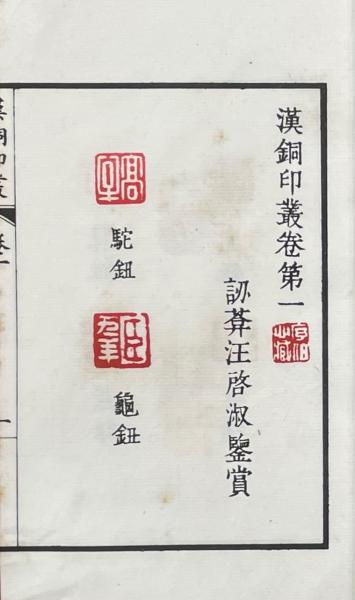 漢銅印叢卷第一
訒葊汪啓淑鑒賞
駝鈕
龜鈕
漢銅印叢
卷一
一